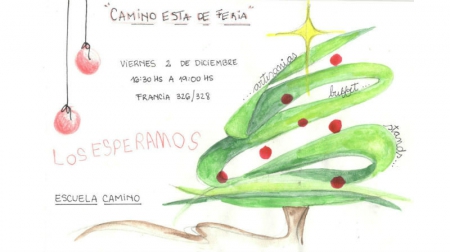 "CAMINO ESTA DE FERIA"
VIERNES 2 DE DICIEMBRE
16:30 HS A 19:00 HS
FRANCIA 326/328
...artesanias
buffet
stands...
LOS ESPERAMOS
ESCUELA CAMINO